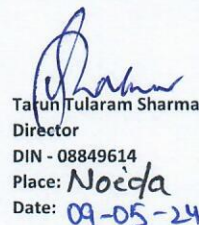 Tarun Tularam Sharma
Director
DIN - 08849614
Place: Noida
Date: 09-05-24